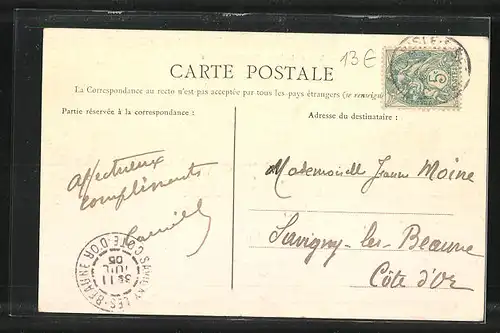 13 E
CARTE POSTALE
La Correspondance au recto n'est pas acceptée par tous les pays étrangers (se renseign
Partie réservée à la correspondance :
Adresse du destinataire :
5
Affectueux
compliments
Camille
Mademoiselle Jeanne Moine
Savigny-les-Beaune
Côte d'Or
SAVIGNY-LES-BEAUNE
CÔTE-D'OR
11
JUIL
05